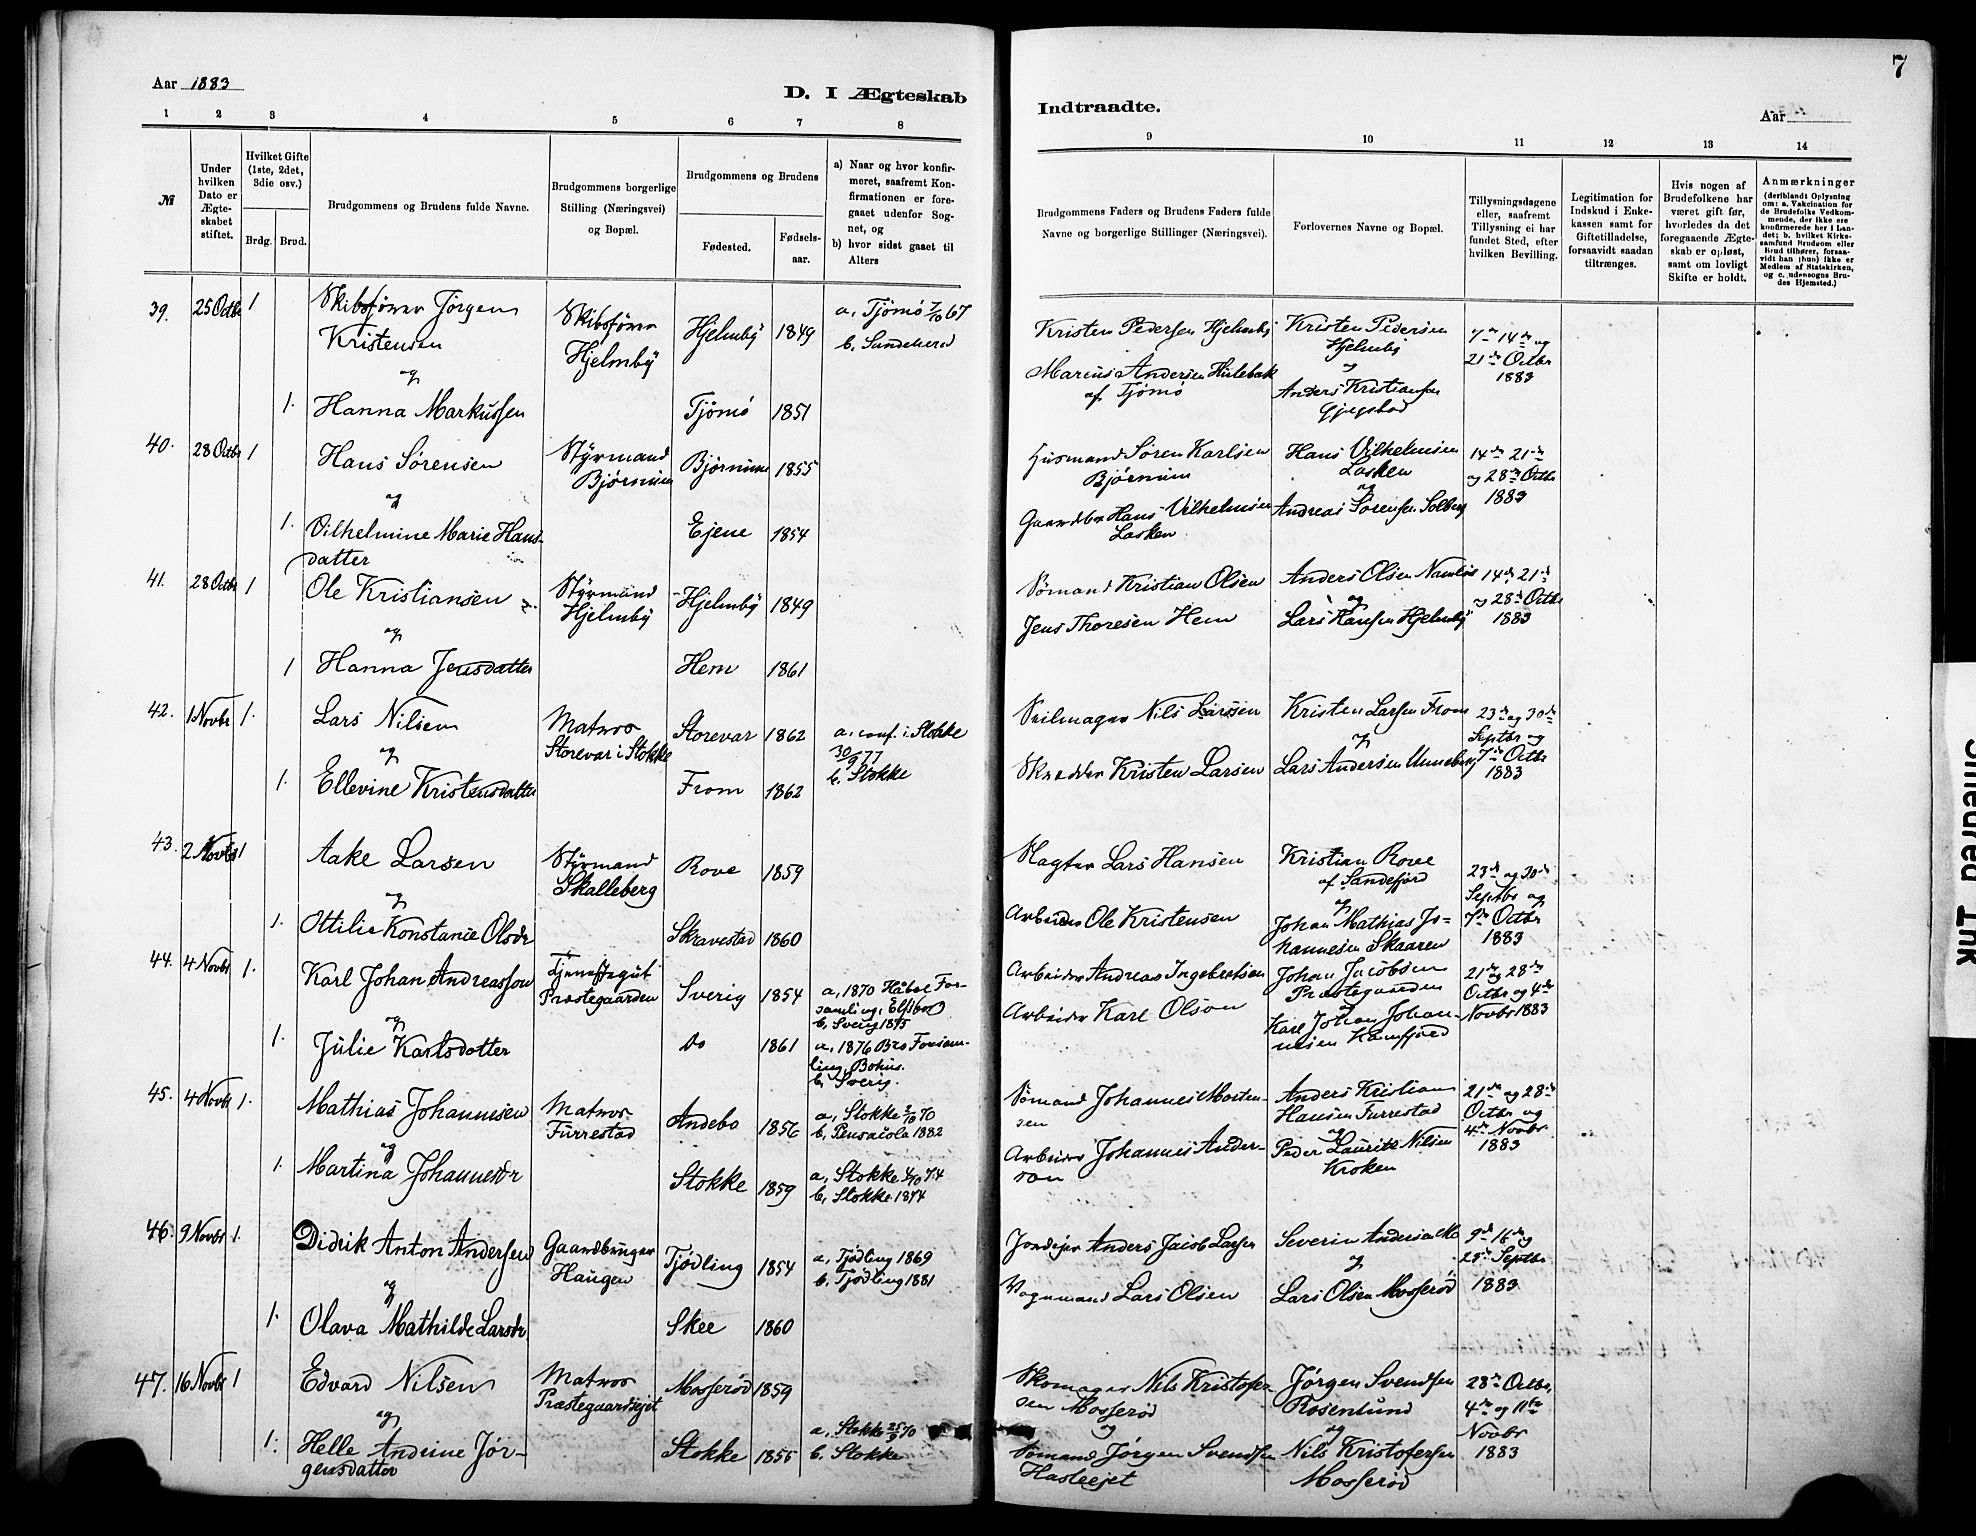 7
Aar 1883
D. I Ægteskab
Indtraadte.
Aar
1 2 3 4 5 6 7 8
9 10 11 12 13 14
№
Under hvilken Dato er Ægteskabet stiftet.
Hvilket Gifte (1ste, 2det, 3die osv.)
Brdg. Brud.
Brudgommens og Brudens fulde Navne.
Brudgommens borgerlige Stilling (Næringsvei) og Bopæl.
Brudgommens og Brudens
Fødested.
Fødselsaar.
a) Naar og hvor konfirmeret, saafremt Konfirmationen er foregaaet udenfor Sognet, og
b) hvor sidst gaaet til Alters
Brudgommens Faders og Brudens Faders fulde Navne og borgerlige Stillinger (Næringsvei).
Forlovernes Navne og Bopæl.
Tillysningsdagene eller, saafremt Tillysning ei har fundet Sted, efter hvilken Bevilling.
Legitimation for Indskud i Enkekassen samt for Giftetilladelse, forsaavidt saadan tiltrænges.
Hvis nogen af Brudefolkene har været gift før, hvorledes da det foregaaende Ægteskab er opløst, samt om lovligt Skifte er holdt.
Anmærkninger (deriblandt Oplysning om: a. Vakcination for de Brudefolks Vedkommende, der ikke ere konfirmerede her i Landet; b. hvilket Kirkesamfund Brudgom eller Brud tilhører, forsaavidt han (hun) ikke er Medlem af Statskirken, og c. udensogns Brudes Hjemsted.)
39. 25 Octbr 1 Skibsfører Jörgen Kristensen
Skibsförer Hjelmby Hjelmby 1849
a, Tjömö 7/10 67
b.
Kristen Pedersen Hjelmby
Kristen Pedersen Hjelmby
7de 14de og 21de Octbr 1883
og
1. Hanna Markussen
Tjömö 1851
Marcus Andersen Hulebak af Tjömö
og Anders Kristiansen
40. 28 Octbr 1 Hans Sørensen
Styrmand Bjørnum Bjørnum 1855
Husmand Søren Karlsen Bjørnum
Hans Vilhelmsen Lasken
14de 21de og 28de Octbr 1883
og
1. Vilhelmine Marie Hansdatter
Ejene 1854
Gaardbr Hans Vilhelmsen Lasken
og Andreas Sørensen Solberg
41. 28 Octbr 1 Ole Kristiansen
Styrmand Hjelmby Hjelmby 1849
Sømand Kristian Olsen
Anders Olsen
14de 21de og 28de Octbr 1883
og
1 Hanna Jensdatter
Hem 1861
Jens Thoresen Hem
og Lars Hansen Hjelmby
42. 1 Novbr 1. Lars Nilsen
Matros Storevar i Stokke Storevar 1862
a, conf. i Stokke 30/9 77
b, Stokke
Seilmager Nils Larsen
Kristen Larsen From
23de og 30de Septbr og 7de Octbr 1883
og
1. Ellevine Kristensdatter
From 1862
Skrædder Kristen Larsen
og Lars Andersen Unneberg
43. 2 Novbr 1 Aake Larsen
Styrmand Skalleberg Rove 1859
Slagter Lars Hansen
Kristian Rove af Sandefjord
23de og 30de Septbr og 7de Octbr 1883
og
1. Ottilie Konstance Olsdr
Skravestad 1860
Arbeider Ole Kristensen
og Johan Mathias Johannesen Skaaren
44. 4 Novbr 1. Karl Johan Andreasson
Tjenestegut Præstegaarden Sverig 1854
a, 1870 Håbol Forsamling, Elfsborg
b, Sverig 1875
Arbeider Andreas Ingebretsen
Johan Jacobsen Præstegaarden
21de og 28de Octbr og 4de Novbr 1883
og
1. Julie Karlsdotter
Do 1861
a, 1876 Bro Forsamling, Bohus.
b, Sverig.
Arbeider Karl Olson
og Karl Johan Johannesen Kamfjord
45. 4 Novbr 1. Mathias Johannesen
Matros Furrestad Andebo 1856
a, Stokke 2/10 70
b, Pensacola 1882
Sømand Johannes Mortensen
Anders Kristian Hansen Furrestad
21de og 28de Octbr og 4de Novbr 1883
og
1. Martina Johannesdr
Stokke 1859
a, Stokke 4/10 74
b, Stokke 1874
Arbeider Johannes Anderson
og Peder Lauritz Nilsen Kroken
46. 9 Novbr 1. Didrik Anton Andersen
Gaardbruger Haugen Tjødling 1854
a, Tjødling 1869
b, Tjødling 1881
Jordeier Anders Jacob Larsen
Severin Andersen Mo
9de 16de og 23de Septbr 1883
og
1. Olava Mathilde Larsdr
Skee 1860
Vognmand Lars Olsen
og Lars Olsen Mosserød
47. 16 Novbr 1 Edvard Nilsen
Matros Præstegaardsejet Mosserød 1859
Skomager Nils Kristofersen Mosserød
Jørgen Svendsen Rosenlund
28de Octbr, 4de og 11te Novbr 1883
og
1. Helle Andrine Jørgensdatter
Stokke 1855
a, Stokke 25/9 70
b. Stokke
og Sømand Jørgen Svendsen Hasleejet
og Nils Kristofersen Mosserød